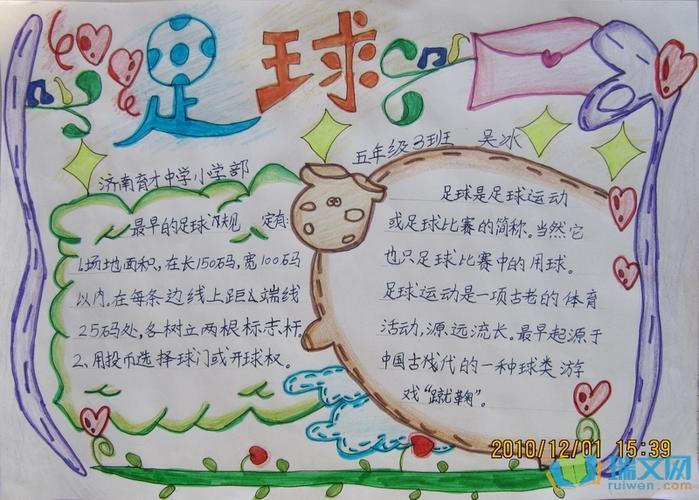 足球
五年级3班 吴冰
济南育才中学小学部
最早的足球法规 定有:
1.场地面积,在长150码,宽100码
以内。在每条边线上距&端线
25码处,各树立两根标志杆
2、用投币选择球门或开球权。
足球是足球运动
或足球比赛的简称。当然它
也只足球比赛中的用球。
足球运动是一项古老的体育
活动,源远流长。最早起源于
中国古代代的一种球类游
戏"蹴鞠"。
2010/12/01 15:39
瑞文网
ruiwen.com